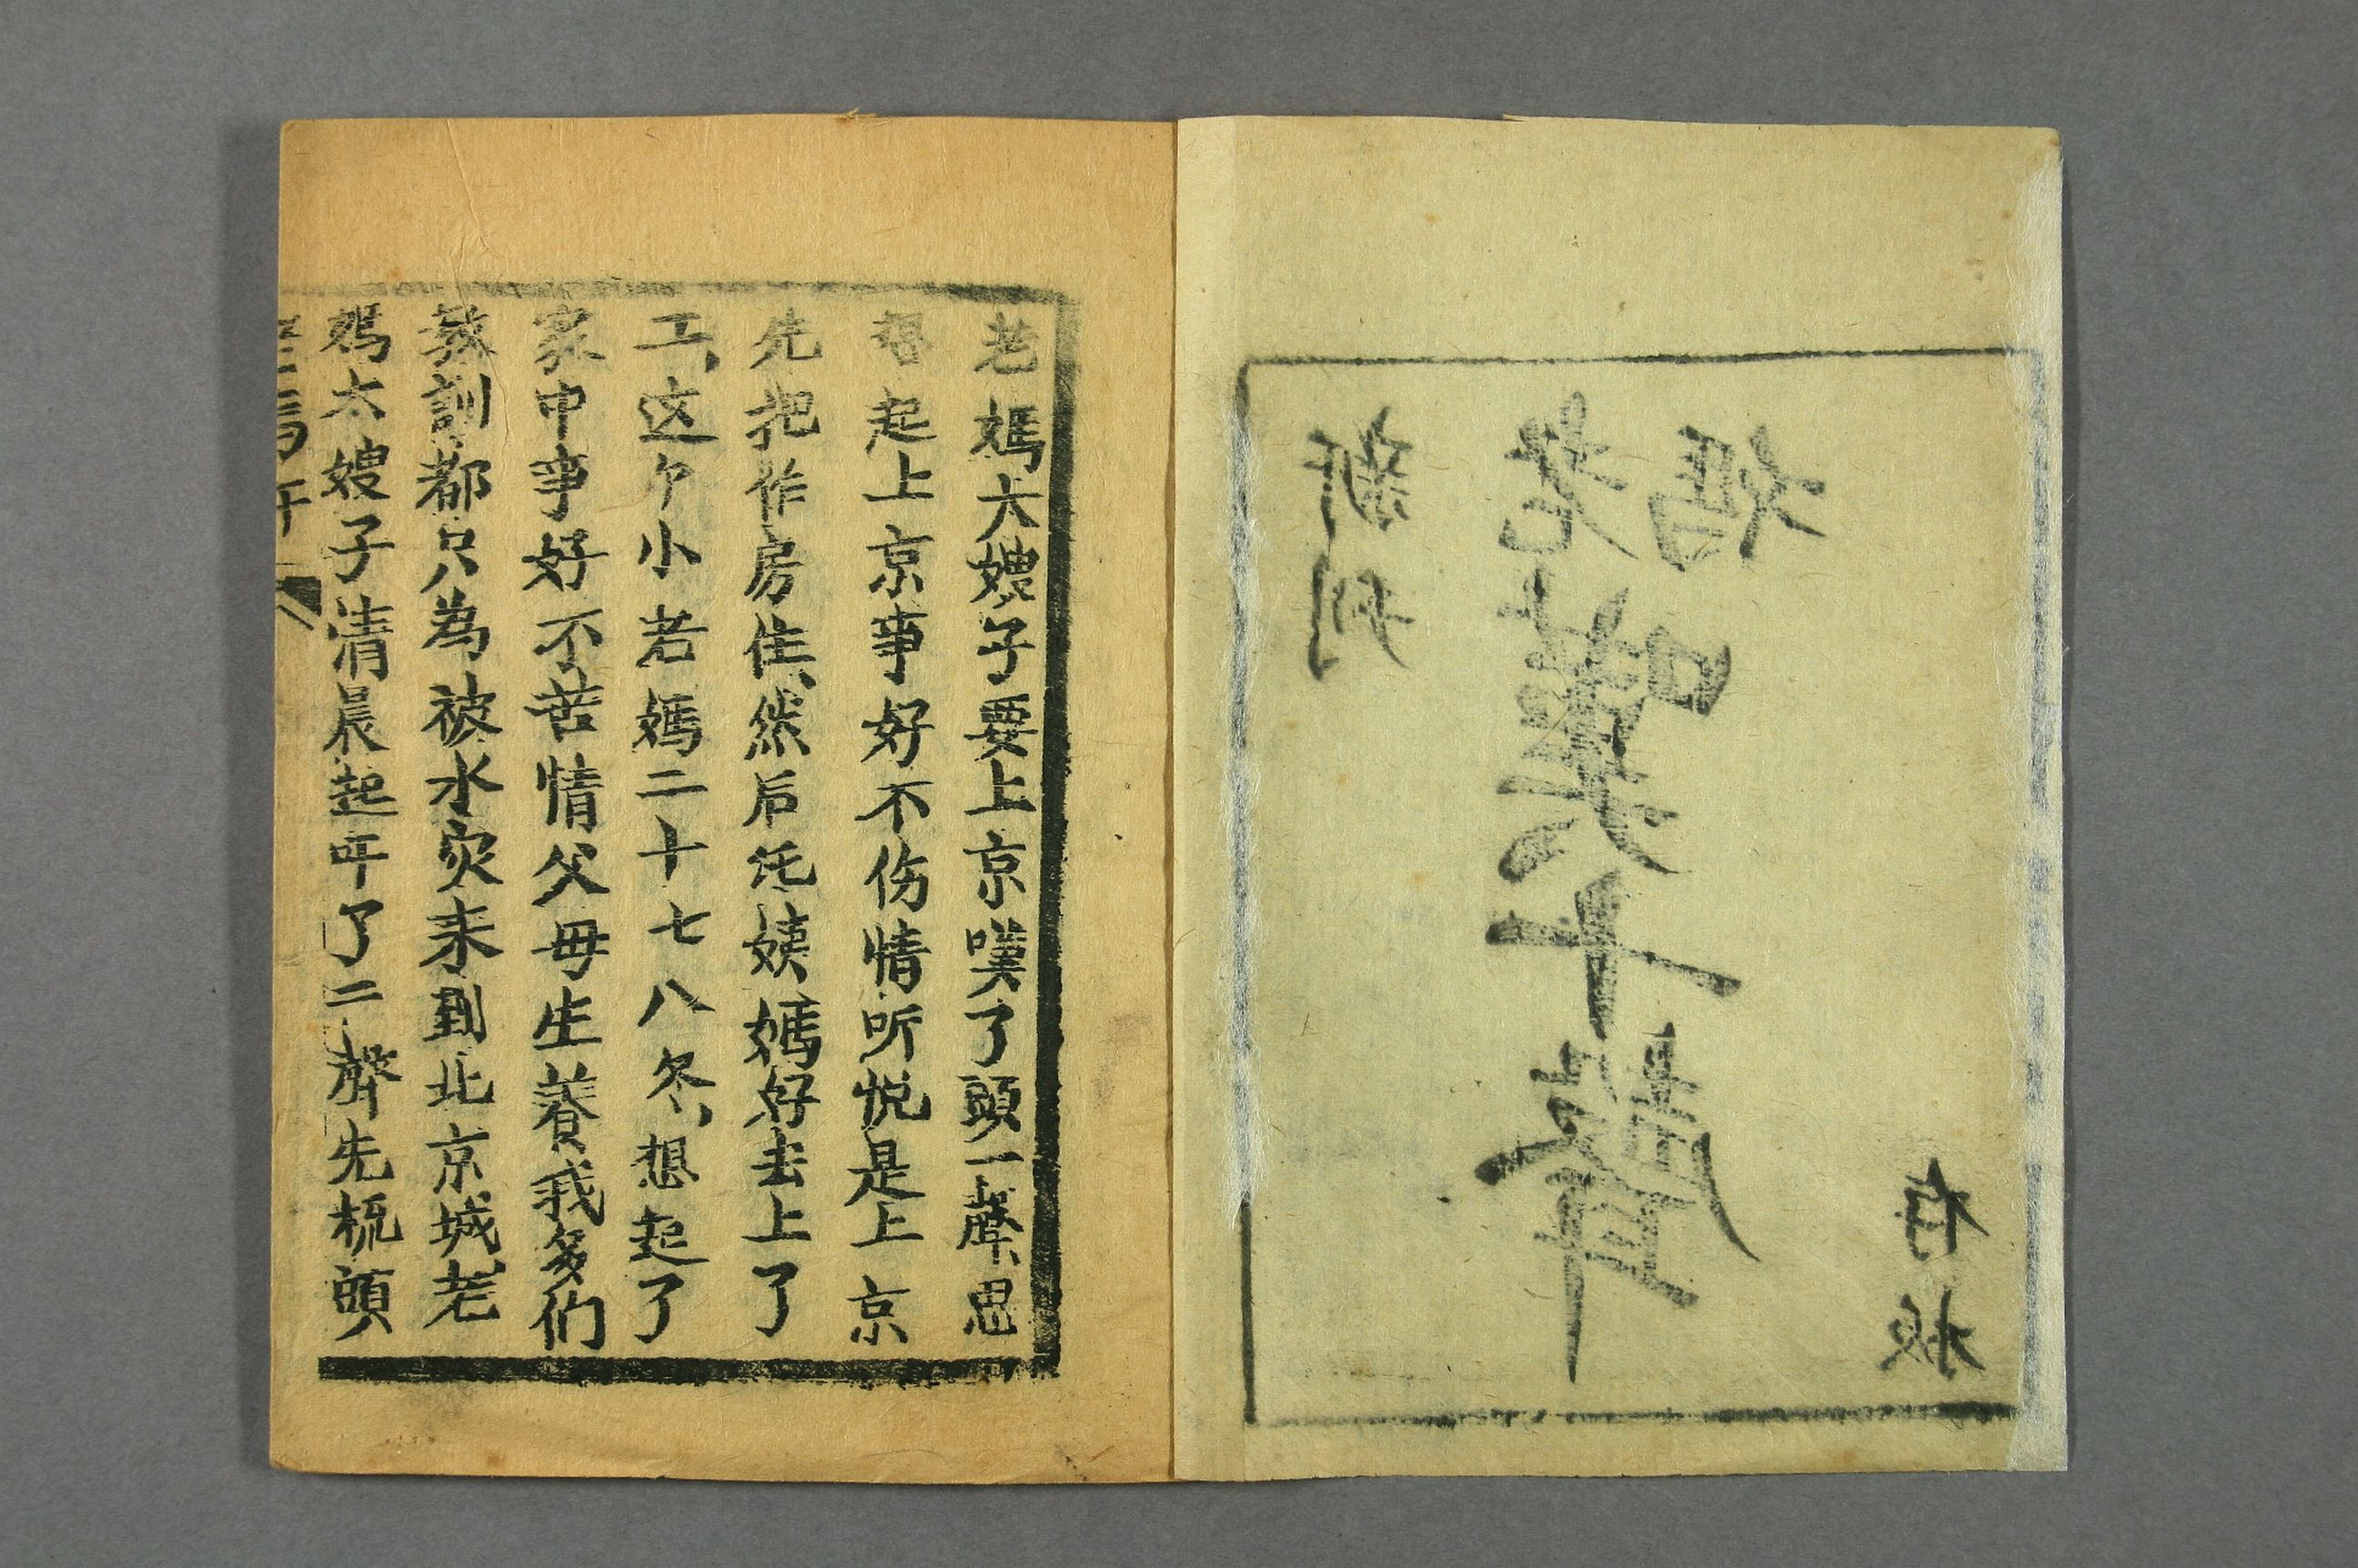 新刻
老媽
嘆十聲
有板
老媽大嫂子要上京嘆了頭一聲思
想起上京事好不伤情听悦是上京
先把作房住、然后托姨媽好去上了
工、这亇小老媽二十七八冬、想起了
家中事好不苦情父母生養我多們
教訓都只為被水灾来到北京城老
媽太嫂子清晨起吁了二聲先梳頭